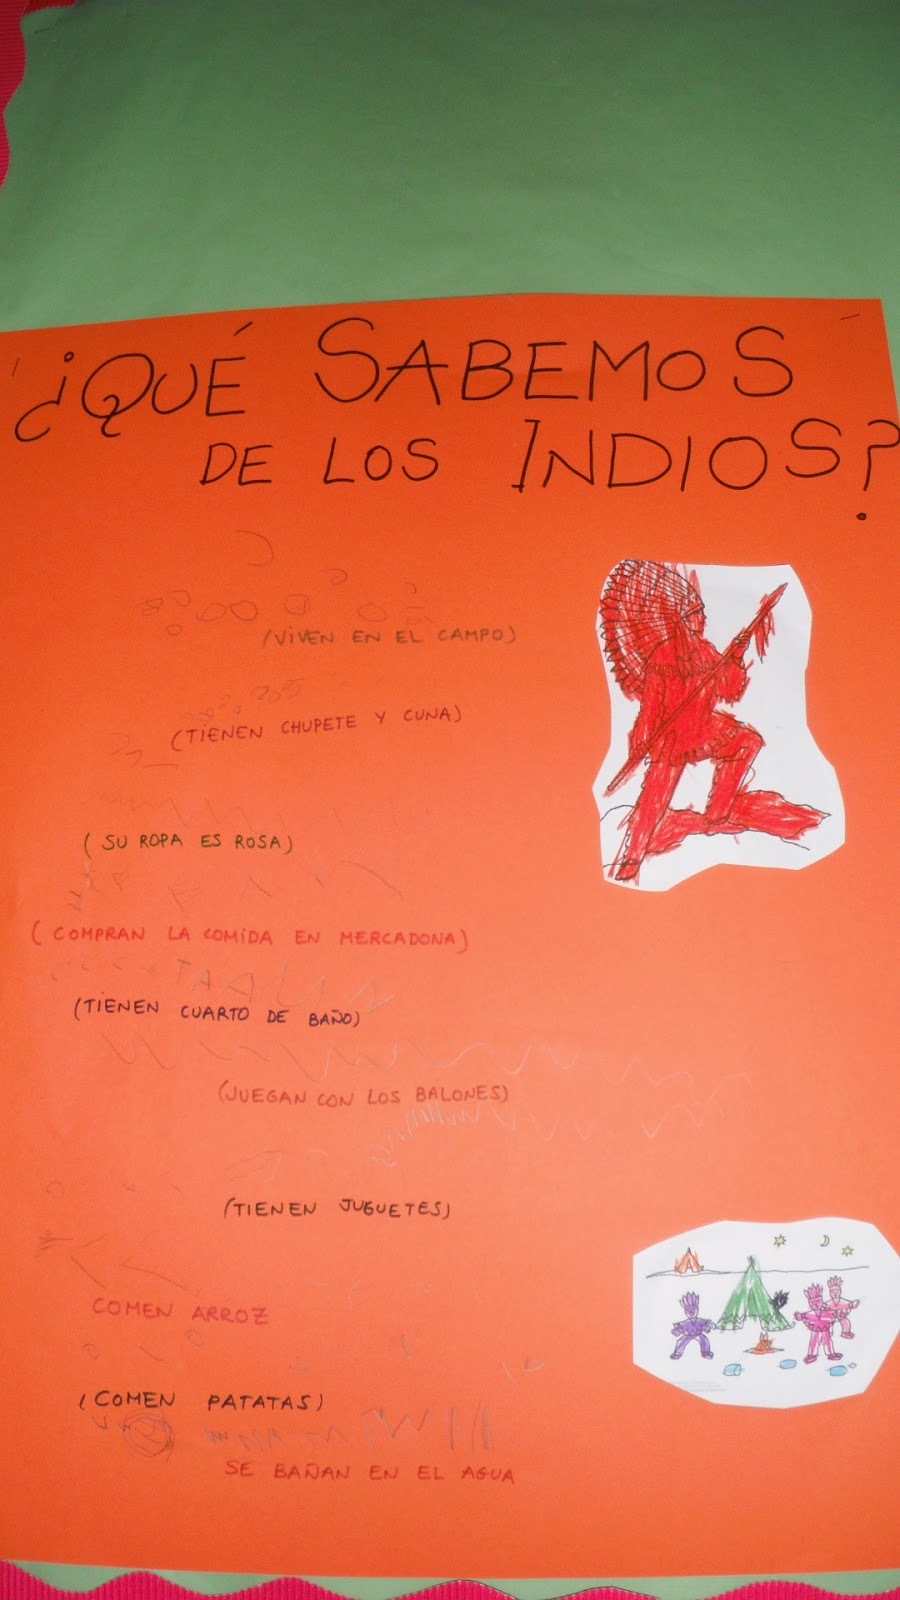 ¿QUÉ SABEMOS
DE LOS INDIOS?
(VIVEN EN EL CAMPO)
(TIENEN CHUPETE Y CUNA)
(SU ROPA ES ROSA)
(COMPRAN LA COMIDA EN MERCADONA)
(TIENEN CUARTO DE BAÑO)
(JUEGAN CON LOS BALONES)
(TIENEN JUGUETES)
COMEN ARROZ
(COMEN PATATAS)
SE BAÑAN EN EL AGUA